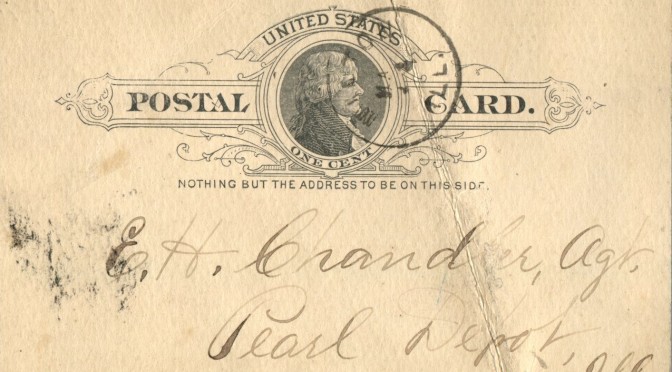 UNITED STATES
POSTAL CARD.
ONE CENT
NOTHING BUT THE ADDRESS TO BE ON THIS SIDE.
E. H. Chandler, Agt.
Pearl Depot,
Ills